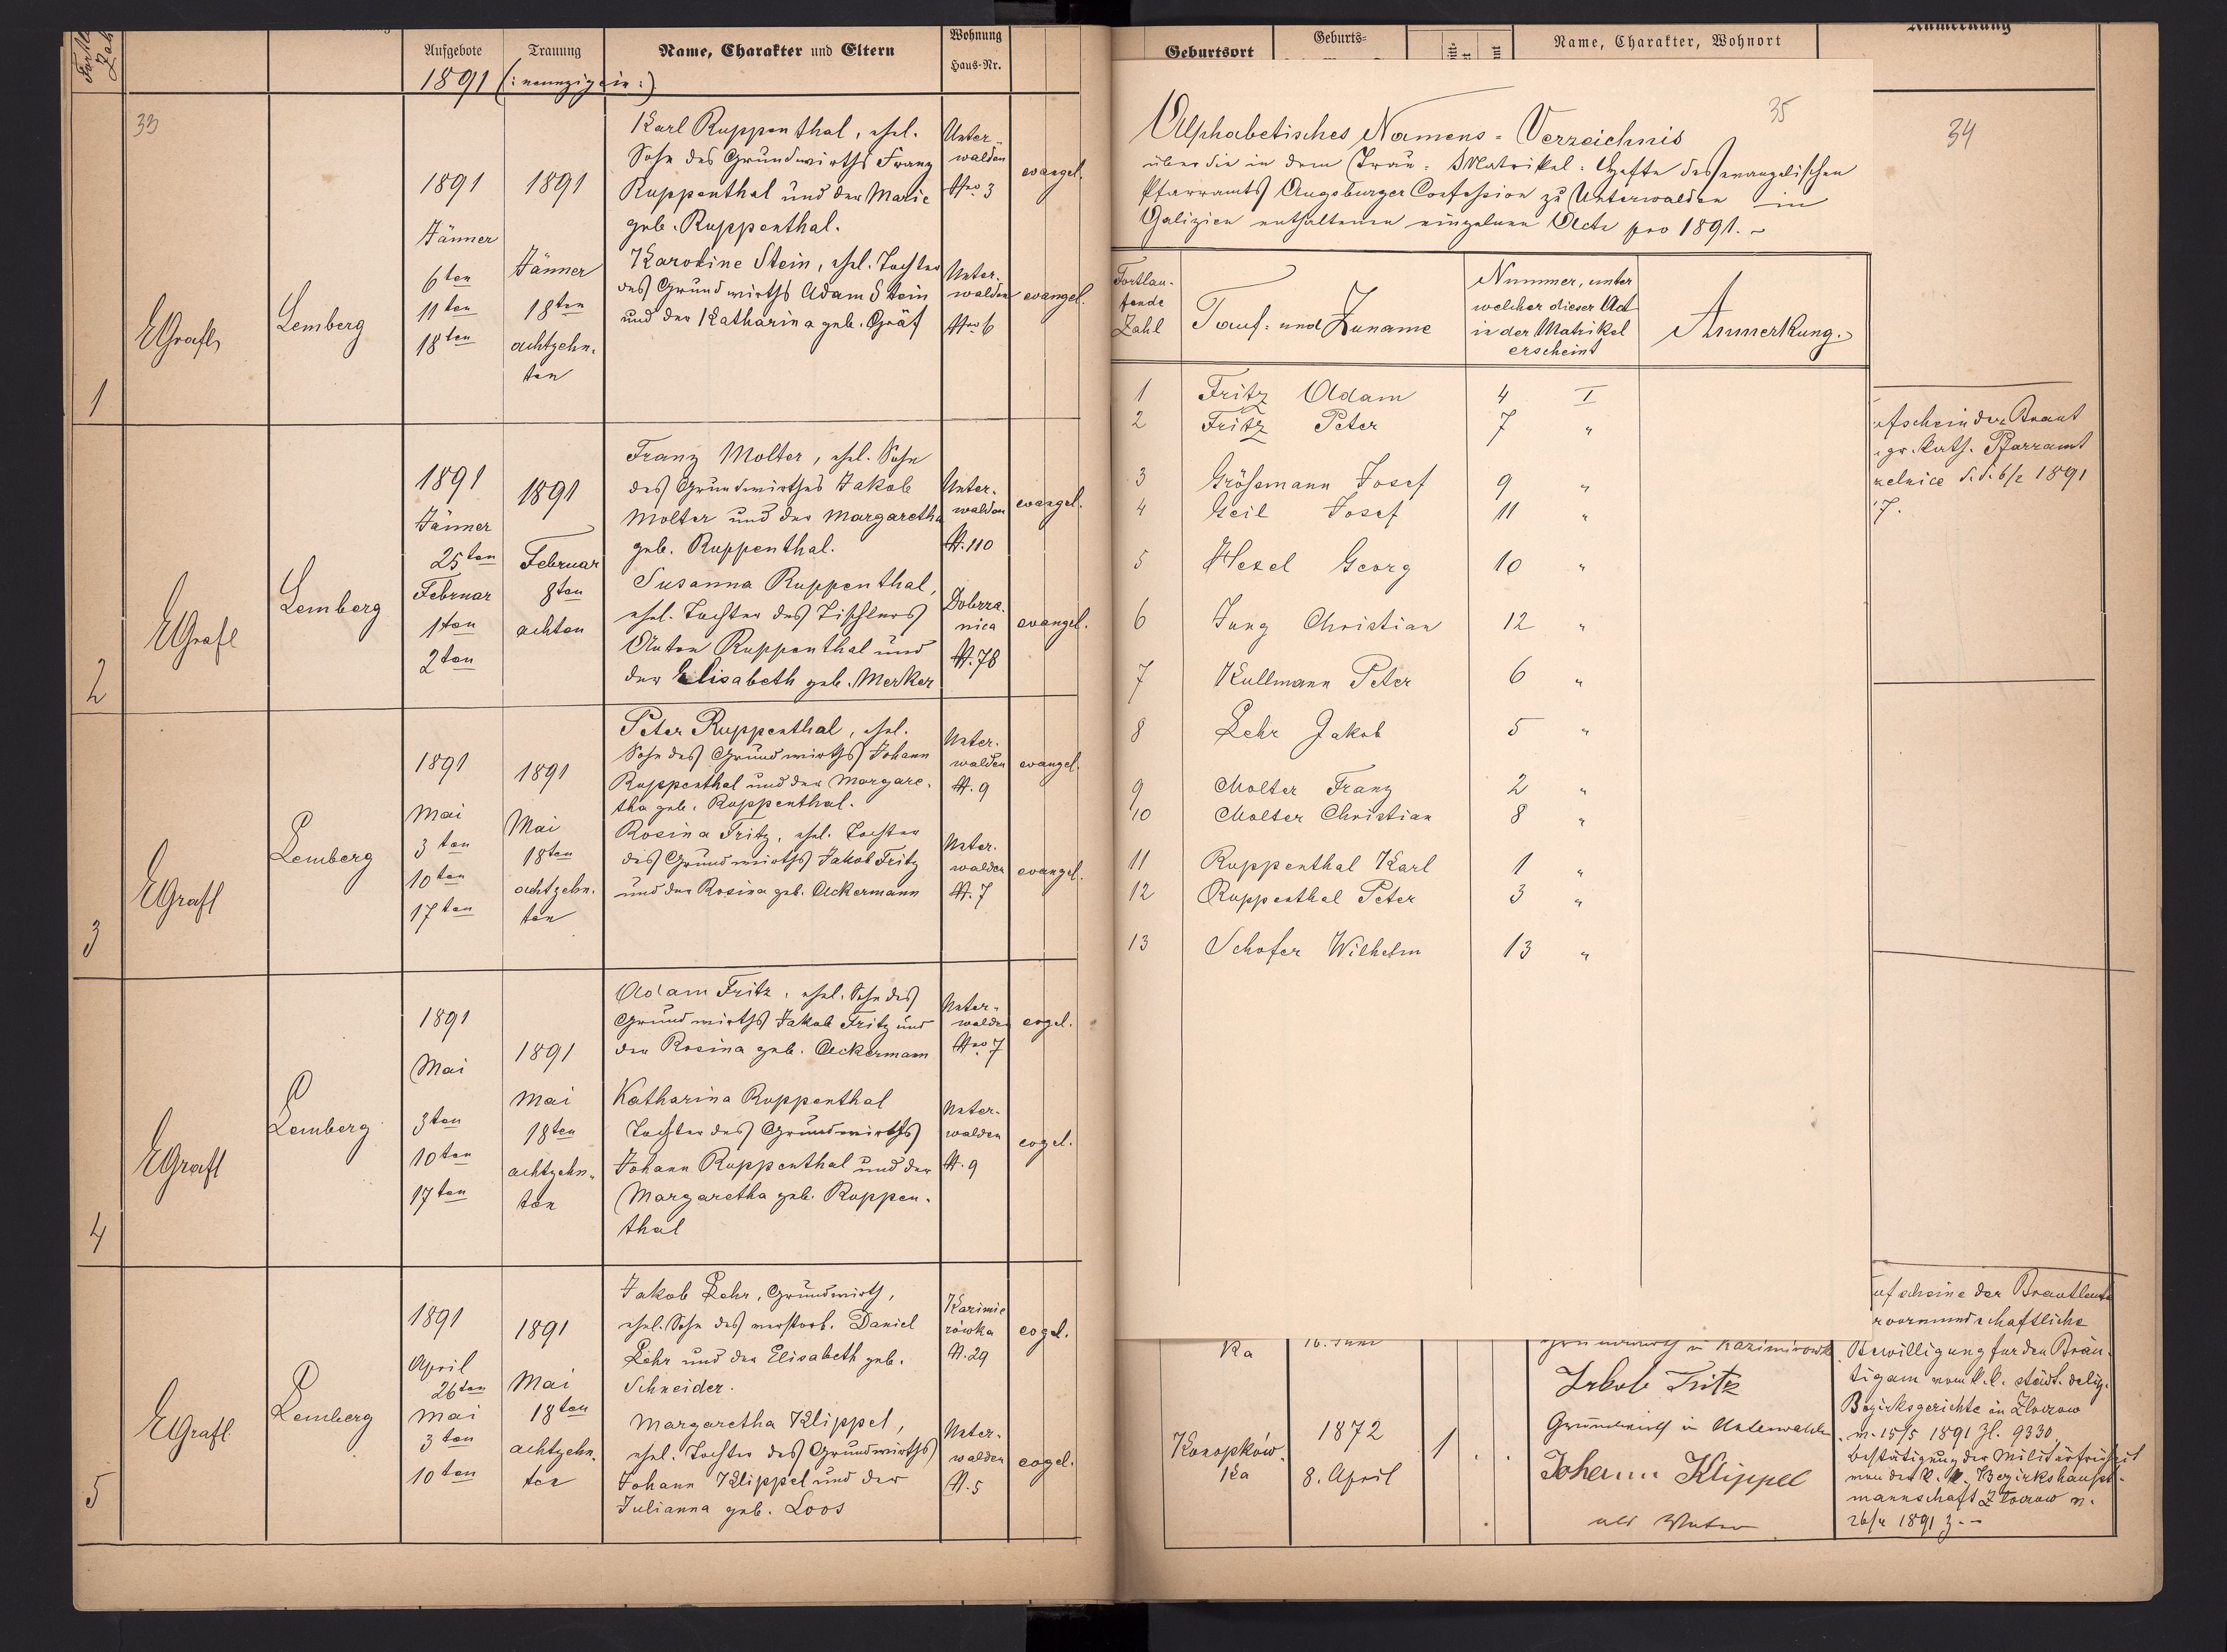 Aufgebote
Trauung
Name, Charakter und Eltern
Wohnung
Haus-Nr.
1891 (: neunzigein :)
33
1
EGrafl
Lemberg
1891
Jänner
6ten
11ten
18ten
1891
Jänner
18ten
achtzehn-
ten
Karl Ruppenthal, ehel.
Sohn des Grundwirths Franz
Ruppenthal und der Marie
geb. Ruppenthal.
Karoline Stein, ehel. Tochter
des Grundwirths Adam Stein
und der Katharina geb. Gräf
Unter-
walden
Nro 3
Unter-
walden
Nro 6
evangel.
evangel.
2
EGrafl
Lemberg
1891
Jänner
25ten
Februar
1ten
2ten
1891
Februar
8ten
achten
Franz Molter, ehel. Sohn
des Grundwirthes Jakob
Molter und der Margaretha
geb. Ruppenthal.
Susanna Ruppenthal,
ehel. Tochter des Tischlers
Anton Ruppenthal und
der Elisabeth geb. Merker
Unter-
walden
N. 110
Dobrza-
nica
N. 78
evangel.
evangel.
3
EGrafl
Lemberg
1891
Mai
3ten
10ten
17ten
1891
Mai
18ten
achtzehn-
ten
Peter Ruppenthal, ehel.
Sohn des Grundwirths Johann
Ruppenthal und der Margare-
tha geb. Ruppenthal.
Rosina Fritz, ehel. Tochter
des Grundwirths Jakob Fritz
und der Rosina geb. Ackermann
Unter-
walden
N. 9
Unter-
walden
N. 7
evangel.
evangel.
4
EGrafl
Lemberg
1891
Mai
3ten
10ten
17ten
1891
Mai
18ten
achtzehn-
ten
Adam Fritz, ehel. Sohn des
Grundwirths Jakob Fritz und
der Rosina geb. Ackermann
Katharina Ruppenthal
Tochter des Grundwirths
Johann Ruppenthal und der
Margaretha geb. Ruppen-
thal
Unter-
walden
Nro 7
Unter-
walden
N. 9
evgel.
evgel.
5
EGrafl
Lemberg
1891
April
26ten
Mai
3ten
10ten
1891
Mai
18ten
achtzehn-
ten
Jakob Lehr, Grundwirth,
ehel. Sohn des verstorb. Daniel
Lehr und der Elisabeth geb.
Schneider.
Margaretha Klippel,
ehel. Tochter des Grundwirths
Johann Klippel und der
Julianna geb. Loos
Kazimie
rówka
N. 29
Unter-
walden
N. 5
evgel.
evgel.
Geburtsort
Geburts-
Name, Charakter, Wohnort
Anmerkung
35
Alphabetisches Namens-Verzeichnis
über die in dem Trau-Matrikel-Hefte des evangelischen
Pfarramts Augsburger Confession zu Unterwalden in
Galizien enthaltenen einzelnen Acte pro 1891. -
Fortlau-
fende
Zahl
Tauf- und Zuname
Nummer, unter
welcher dieser Act
in der Matrikel
erscheint
Anmerkung.
1 Fritz Adam 4 I
2 Fritz Peter 7 "
3 Grössmann Josef 9 "
4 Geil Josef 11 "
5 Hexel Georg 10 "
6 Jung Christian 12 "
7 Kullmann Peter 6 "
8 Lehr Jakob 5 "
9 Molter Franz 2 "
10 Molter Christian 8 "
11 Ruppenthal Karl 1 "
12 Ruppenthal Peter 3 "
13 Schofer Wilhelm 13 "
34
ufschein der Braut
gr. kath. Pfarramt
6/2 1891
7.
ufscheine der Brautleute
rvormundschaftliche
Bewilligung für den Bräu-
tigam vom k.k. städt. deleg.
Bezirksgerichte in Zloczow
v. 15/5 1891 Zl. 9330.
Bestätigung der Militärfreiheit
von der k.k. Bezirkshaupt-
mannschaft Zloczow v.
26/4 1891 Z. -
ka
16. Juni
Grundwirth in Kazimirowka
Jakob Fritz
Grundwirth in Unterwalden
Konopków-
ka
1872
8. April
1
Johann Klippel
als Vater